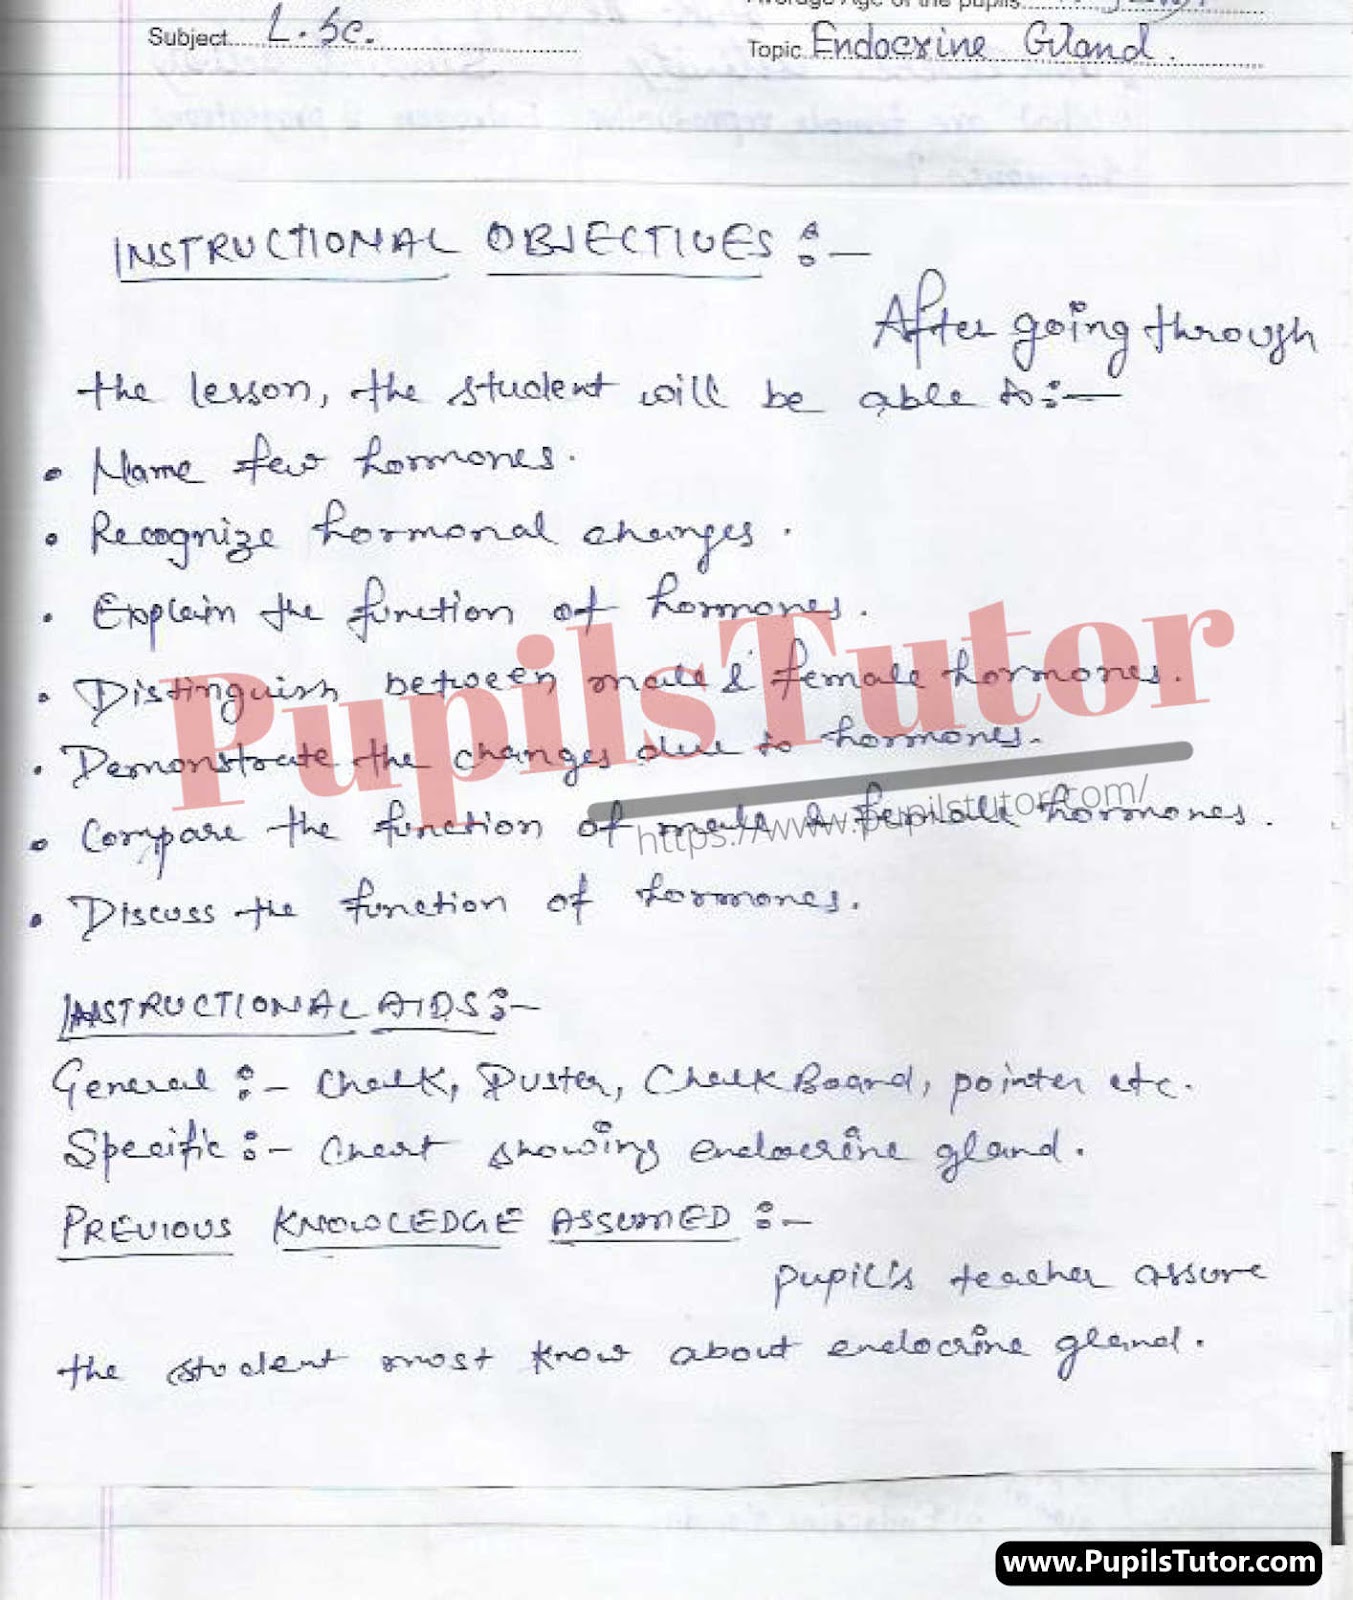 Average Age of the pupils
Subject L. Sc.
Topic Endocrine Gland.
INSTRUCTIONAL OBJECTIVES :-
After going through
the lesson, the student will be able to:-
• Name few hormones.
• Recognize hormonal changes.
• Explain the function of hormones.
• Distinguish between male & female hormones.
• Demonstrate the changes due to hormones.
• Compare the function of male & female hormones.
• Discuss the function of hormones.
INSTRUCTIONAL AIDS :-
General :- Chalk, Duster, Chalk Board, pointer etc.
Specific :- Chart showing endocrine gland.
PREVIOUS KNOWLEDGE ASSUMED :-
pupil's teacher assure
the student most know about endocrine gland.
PupilsTutor
https://www.pupilstutor.com/
www.PupilsTutor.com